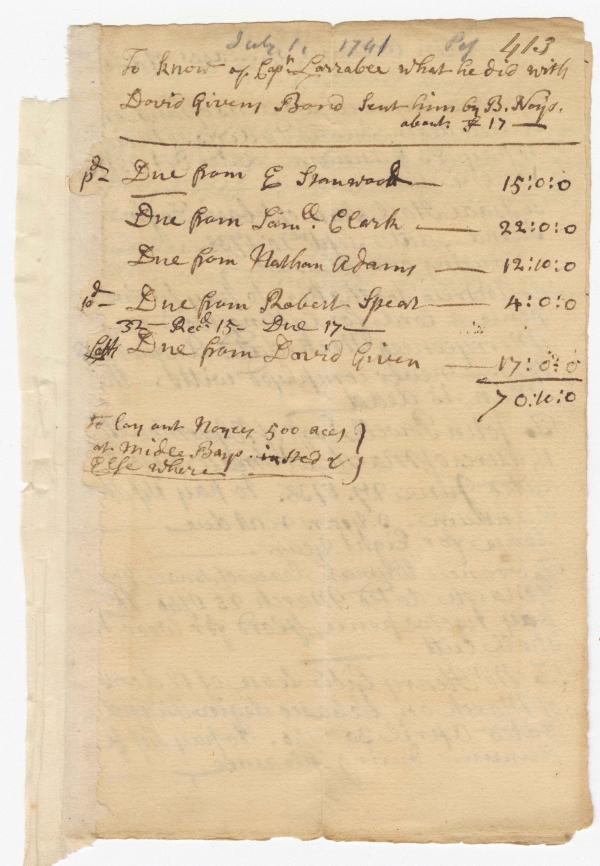 July 1. 1741 Pej 413
To Know of Capn Larrabee what he did with
David Givens Bond Sent him by B. Noys.
about £ 17 —
pd— Due from E Stanwood — 15:0:0
Due from Samll. Clark — 22:0:0
Due from Nathan Adams — 12:10:0
pd— Due from Robert Spear — 4:0:0
32— Recd. 15— Due 17—
Due from David Given — 17:0:0
70:10:0
To lay out Noyees 500 aces
at Midle Bays insted of
Else where